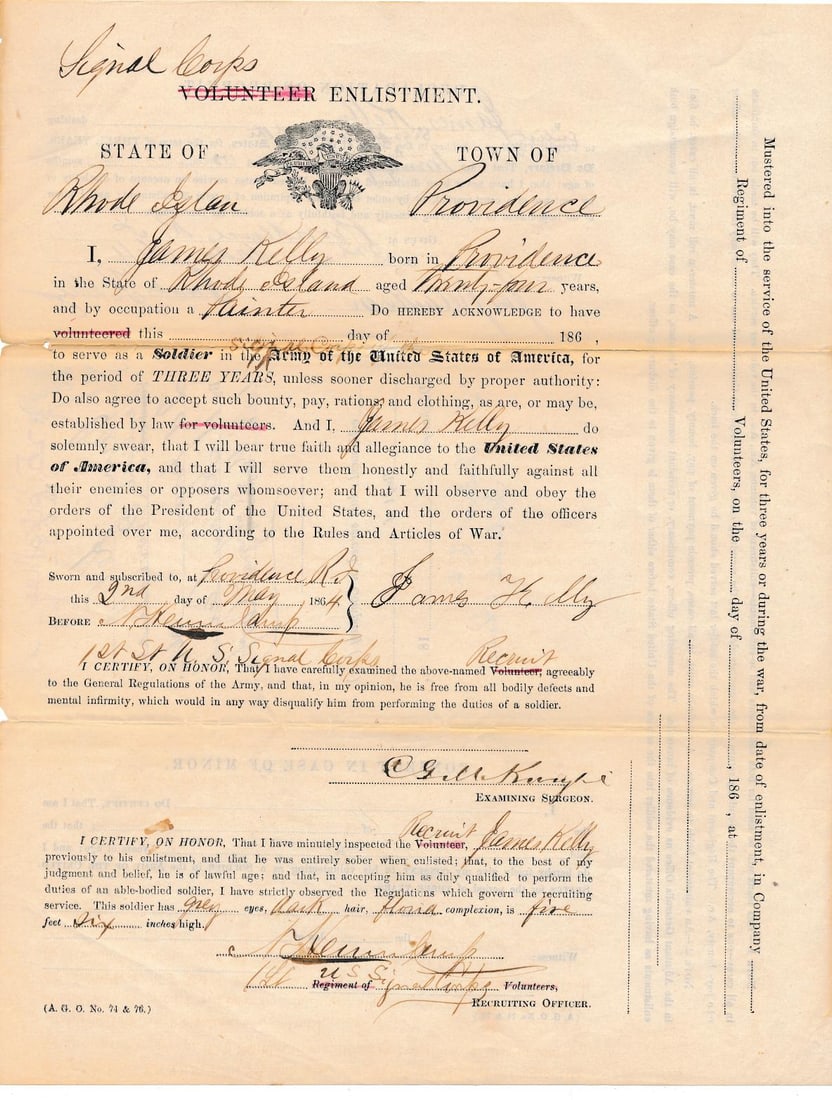 Signal Corps
VOLUNTEER ENLISTMENT.
STATE OF TOWN OF
Rhode Islan Providence
I, James Kelly born in Providence
in the State of Rhode Island aged Twenty-four years,
and by occupation a Painter Do HEREBY ACKNOWLEDGE to have
volunteered this day of 186 ,
Signal Corps
to serve as a Soldier in the Army of the United States of America, for
the period of THREE YEARS, unless sooner discharged by proper authority:
Do also agree to accept such bounty, pay, rations, and clothing, as are, or may be,
established by law for volunteers. And I, James Kelly do
solemnly swear, that I will bear true faith and allegiance to the United States
of America, and that I will serve them honestly and faithfully against all
their enemies or opposers whomsoever; and that I will observe and obey the
orders of the President of the United States, and the orders of the officers
appointed over me, according to the Rules and Articles of War.
Sworn and subscribed to, at Providence R I
this 2nd day of May 1864
James Kelly
BEFORE
1st Lt U S Signal Corps
Recruit
I CERTIFY, ON HONOR, That I have carefully examined the above-named Volunteer, agreeably
to the General Regulations of the Army, and that, in my opinion, he is free from all bodily defects and
mental infirmity, which would in any way disqualify him from performing the duties of a soldier.
Knight
EXAMINING SURGEON.
Recruit
I CERTIFY, ON HONOR, That I have minutely inspected the Volunteer, James Kelly
previously to his enlistment, and that he was entirely sober when enlisted; that, to the best of my
judgment and belief, he is of lawful age; and that, in accepting him as duly qualified to perform the
duties of an able-bodied soldier, I have strictly observed the Regulations which govern the recruiting
service. This soldier has grey eyes, dark hair, florid complexion, is five
feet six inches high.
1st U S Signal Corps
Regiment of Volunteers,
RECRUITING OFFICER.
(A. G. O. No. 74 & 76.)
Mustered into the service of the United States, for three years or during the war, from date of enlistment, in Company
Regiment of Volunteers, on the day of , 186 , at